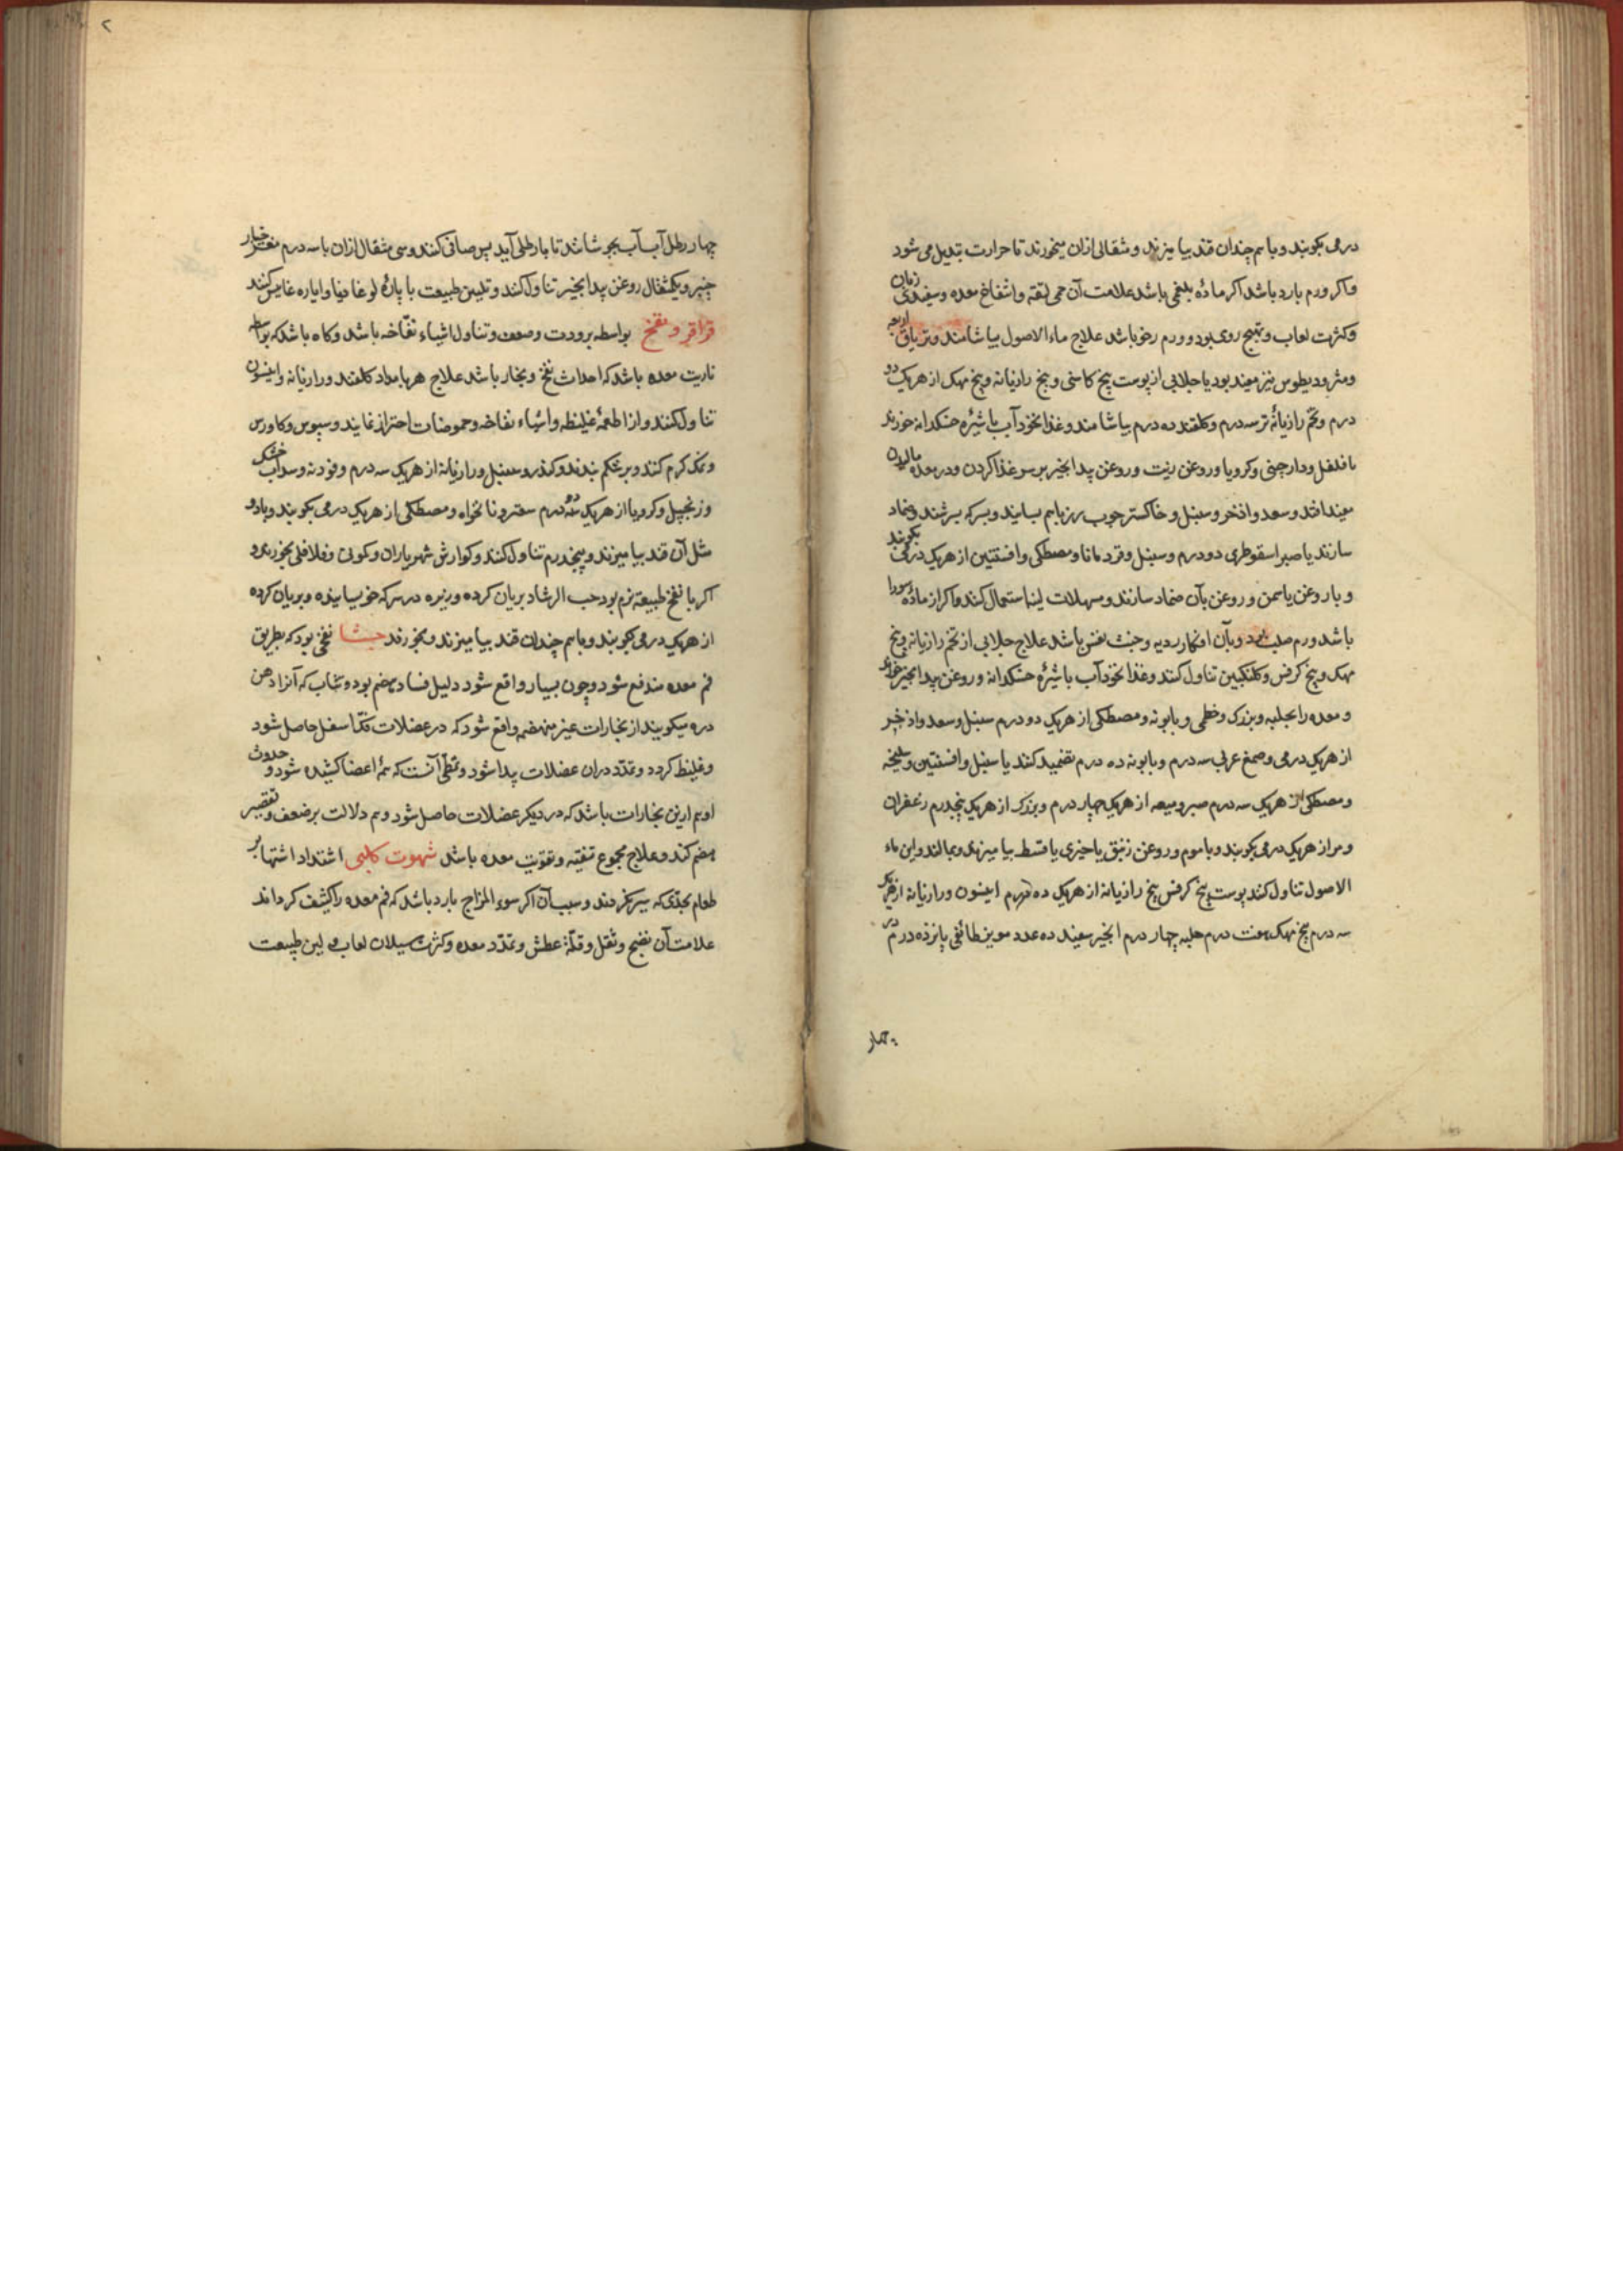 درمی بکوبند و با سم چندان قند بیامیزند و مثقالی ازان میخورند تا حرارت تبدیل می شود
واکر ورم بارد باشد اکر ماده بلغمی باشد علامت آن حمی لثقه و انتفاخ معده و سفیدی زبان
وکثرت لعاب و تهیج روی بود و ورم رخو باشد علاج ماء الاصول بیاشامند و تریاق اربعه
ومثرودیطوس نیز مفید بود یا جلابی از پوست بیخ کاسنی و بیخ رازیانه و بیخ مهک از هریک دو
درم وتخم رازیانه تر سه درم وکلقند ده درم بیاشامند و غذا نخود آب با شیره خشکدانه خورند
با فلفل ودارچینی وکرویا وروغن زیت وروغن بیدانجیر بر سو غذا کردن ودر معده مالیدن
مفید افتد وسعد واذخر وسنبل وخاکستر چوب رز باهم بسایند وبسرکه بسرشند وضماد
سازند یا صبر اسقوطری دو درم وسنبل وقردمانا ومصطکی وافسنتین از هریک درمی بکوبند
و با روغن یاسمن وروغن بان ضماد سازند ومسهلات لینا استعمال کنند واکر از ماده سودا
باشد ورم صلب بود وبآن افکار ردیه وخبث نفس باشد علاج جلابی از تخم رازیانه وبیخ
مهک وبیخ کرفس وکلنکبین تناول کنند وغذا نخود آب با شیره خشکدانه و روغن بیدانجیر خورند
و معده را بحلبه وبزرک وخطمی وبابونه ومصطکی از هریک دو درم سنبل وسعد واذخر
از هریک درمی وصمغ عربی سه درم وبابونه ده درم تضمید کنند یا سنبل وافسنتین وسلیخه
ومصطکی از هریک سه درم صبر ومیعه از هریک چهار درم وبزرک از هریک پنجدرم زعفران
ومر از هریک درمی بکوبند وبا موم وروغن زنبق یا خیری یا قسط بیامیزند وبمالند واین ماء
الاصول تناول کنند پوست بیخ کرفس بیخ رازیانه از هریک ده درم انیسون ورازیانه از هریک
سه درم بیخ مهک هفت درم حلبه چهار درم انجیر سفید ده عدد مویز طائفی پانزده درم در
چهار
۲
چهار رطل آب آب بجوشانند تا با رطلی آید پس صافی کنند وسی مثقال ازان با سه درم مغز خیار
چنبر ویکمثقال روغن بیدانجیر تناول کنند وتلیین طبیعت با یاره لوغاذیا وایاره غایس کنند
قراقر و نفخ بواسطه برودت وضعف وتناول اشیاء نفّاخه باشد وکاه باشد که بواسطه
ناریت معده باشد که احداث نفخ وبخار باشد علاج هر بامداد کلقند ورازیانه وانیسون
تناول کنند واز اطعمه غلیظه واشیاء نفاخه وحموضات احتراز نمایند وسبوس وکاورس
ونمک کرم کنند وبر شکم بندند وکندر وسنبل ورازیانه از هریک سه درم وفودنه وسداب خشک
وزنجبیل وکرویا از هریک دو درم سعتر ونانخواه ومصطکی از هریک درمی بکوبند وبا دو
مثل آن قند بیامیزند وپنجدرم تناول کنند وکوارش شهریاران وکمونی وفلافلی بخورند و
اکر با نفخ طبیعة نرم بود حب الرشاد بریان کرده وزیره در سرکه خوسانیده وبریان کرده
از هریک درمی بکوبند وباسم چندان قند بیامیزند وبخورند جشا نفخی بود که بطریق
فم معده مندفع شود وچون بسیار واقع شود دلیل فساد هضم بود وتثاب که آنرا دهن
دره میکویند از بخارات غیر منهضم واقع شود که در عضلات فکّ اسفل حاصل شود
وغلیظ کردد وتمدّد دران عضلات پیدا شود وتمطّی آنست که همه اعضا کشیده شود وحدوث
او هم ازین بخارات باشد که در دیکر عضلات حاصل شود وهم دلالت بر ضعف وتقصیر
هضم کند وعلاج مجموع تنقیه وتقویت معده باشد شهوت کلبی اشتداد اشتها بر
طعام بحدّی که سیر نکردند وسبب آن اکر سوء المزاج بارد باشد که فم معده را کثیف کرداند
علامت آن نفخ وثقل وقلّة عطش وتمدّد معده وکثرت سیلان لعاب ولین طبیعت